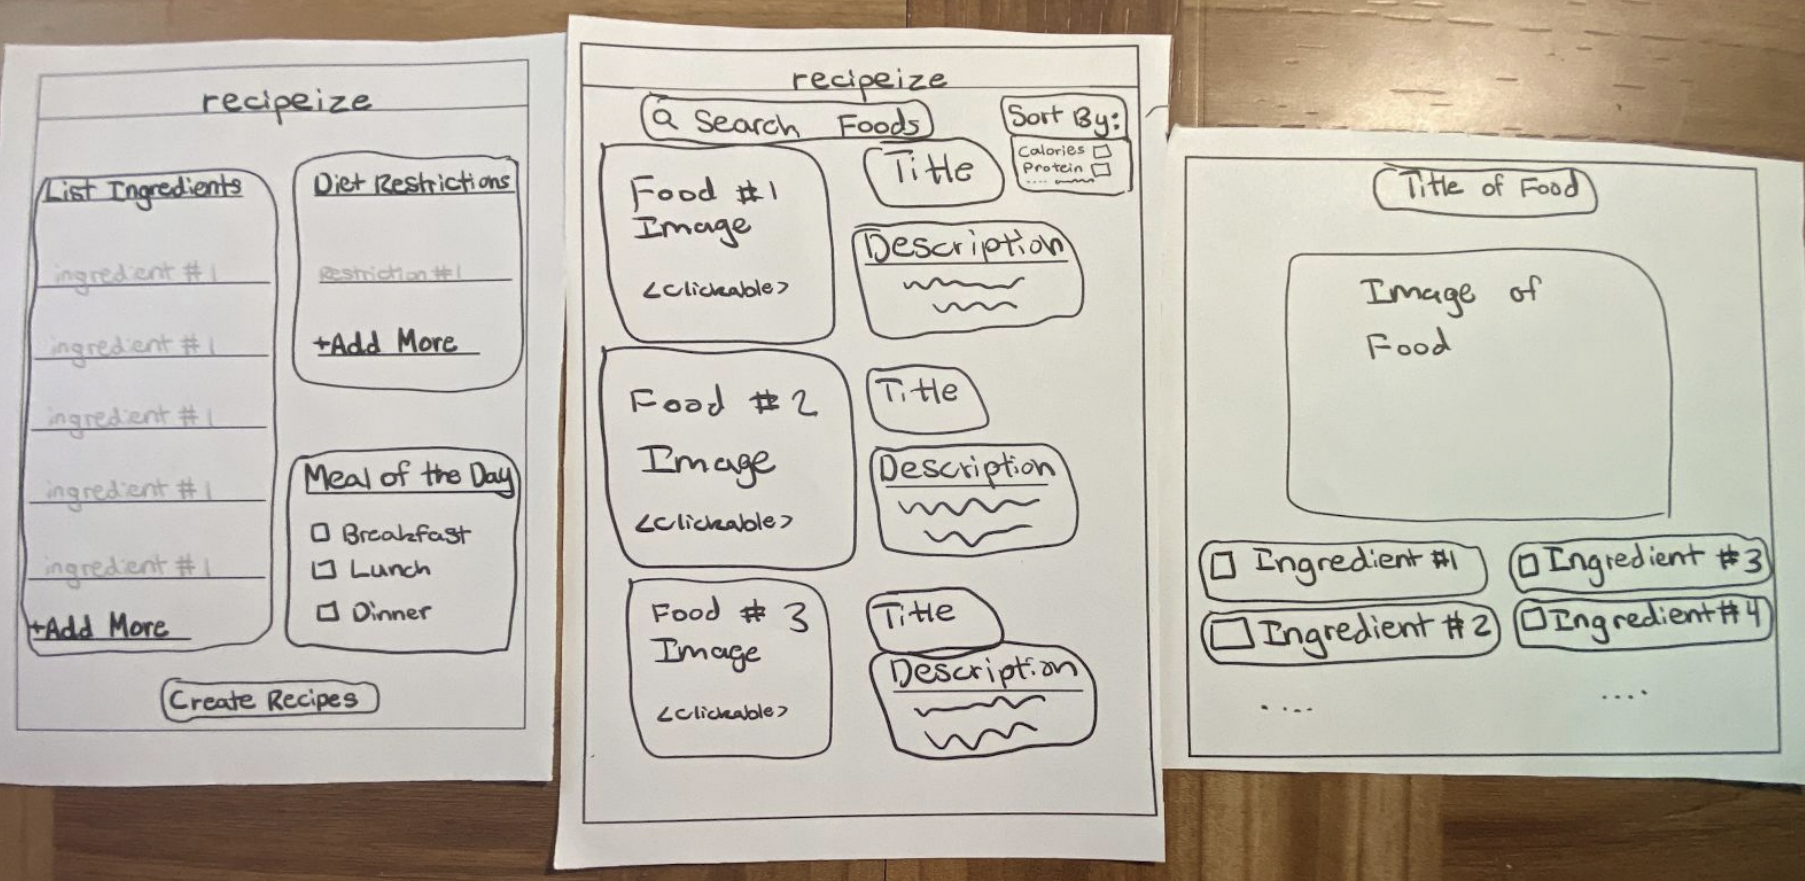 recipeize
List Ingredients
ingredient #1
ingredient #1
ingredient #1
ingredient #1
ingredient #1
+Add More
Diet Restrictions
Restriction #1
+Add More
Meal of the Day
Breakfast
Lunch
Dinner
Create Recipes
recipeize
Search Foods
Sort By:
Calories
Protein
....
Food #1
Image
<Clickable>
Title
Description
Food #2
Image
<Clickable>
Title
Description
Food #3
Image
<Clickable>
Title
Description
Title of Food
Image of
Food
Ingredient #1
Ingredient #3
Ingredient #2
Ingredient #4
....
....